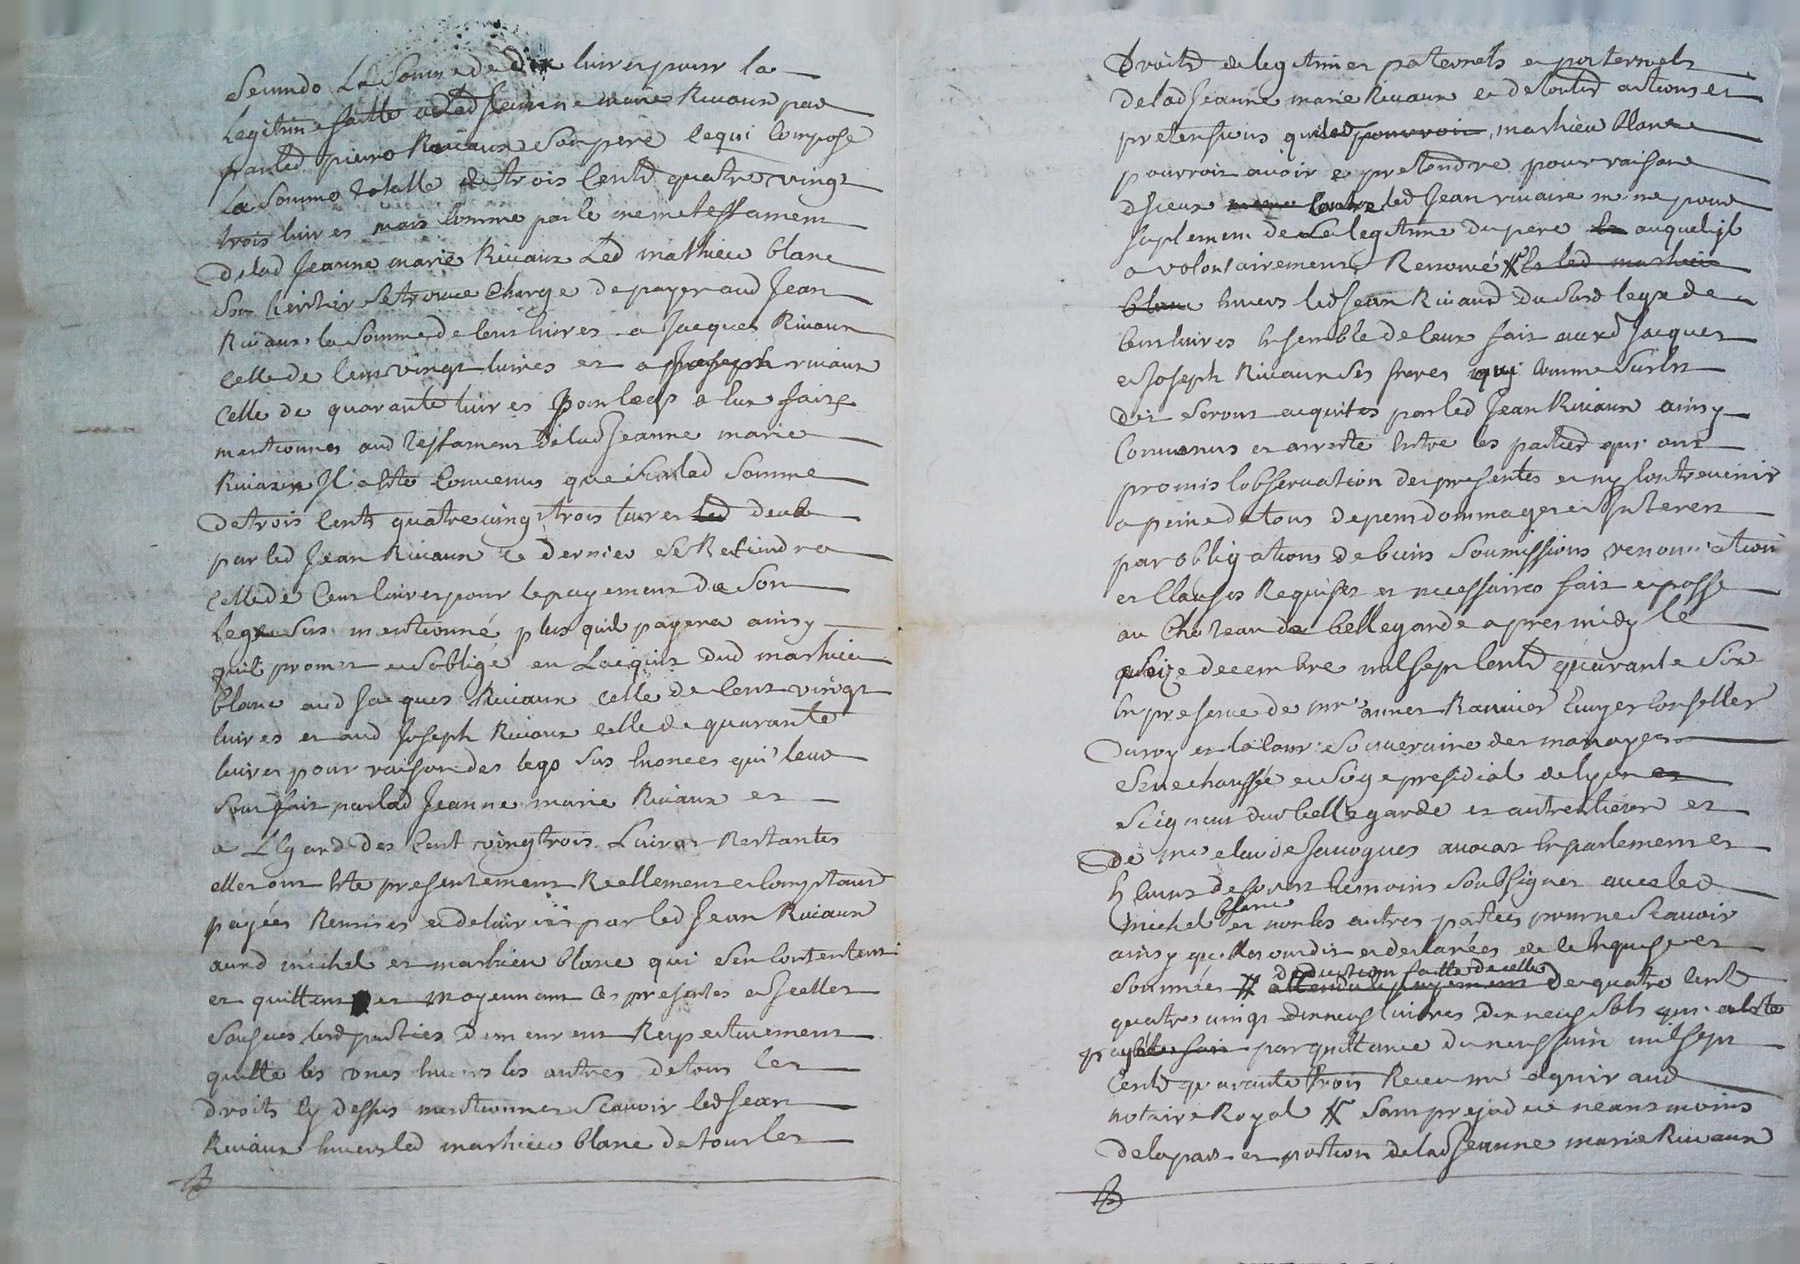 Secundo La Somme de dix livres pour la
Legitime faitte a Lad Jeanne marie Rivaux par
par led pierre Rivaux Son pere Ce qui Compose
La Somme totalle de trois Cents quatre vingt
trois livres mais Comme par le meme testament
de lad Jeanne marie Rivaux Led mathieu blanc
Son heritier Se trouve Charge de payer aud Jean
Rivaux la Somme de Cent livres a Jacques Rivaux
Celle de Cent vingt livres et a Joseph rivaux
Celle de quarante livres pour legs a lux faits
mentionnes aud testament de lad Jeanne marie
Rivaux Il a été Convenus que Sur lad Somme
de trois Cents quatre vingt trois livres led deub
par led Jean Rivaux Ce dernier Se Retiendra
Celle de Cent livres pour le payement de Son
legs Sus mentionné plus quil payera ainsy
quil promet et Soblige en Lacquit dud mathieu
blanc aud Jacques Rivaux Celle de Cent vingt
livres et aud Joseph Rivaux Celle de quarante
livres pour raison des legs Sus Enonces qui leur
Sont fait par lad Jeanne marie Rivaux et
a LEgard des Cent vingt trois Livres Restantes
elles ont Eté presentement Reellement et Comptant
payées Remises et delivrées par led Jean Rivaux
aurd michel et mathieu blanc qui Sen Contentent
et quittent et moyennant les presentes et Jcelles
Lesd parties demeurent Respectivement
quitte les unes Envers les autres de tous Les
droits Cy dessus mentionnes Scavoir led Jean
Rivaux Envers led mathieu blanc de tous les
droits de legitimes paternels et maternels
de lad Jeanne marie Rivaux et de touttes actions et
pretensions que led pourroit mathieu blanc
pourroit avoir et pretendre pour raison
d'Jceux Contre led Jean rivaire meme pour
Suplement de La legitime du pere auquel jl
a volontairement Renoncé Et led mathieu
blanc Envers led Jean Rivaux du Susd legs de
Cent livres Ensemble de Ceux fait auxd Jacques
et Joseph Rivaux Ses freres qui Comme Susest
dit Seront acquites par led Jean Rivaux ainsy
Convenus et arreté Entre les parties qui ont
promis lobservation des presentes et ny Contrevenir
a peine de tous depens dommages et Jnterets
par obligations de biens Soumissions renonciation
et Clauses Requises et necessaires fait et passé
au Chateau de bellegarde apres midy le
Seize decembre mil Sept Cents quarante Six
En presence de mre annet Rannier Ecuyer Conseller
du roy en la Cour Souveraine des monoyes
Senechaussée et Siege presidial de lyon et
Seigneur dud bellegarde et autres lieux et
de me Claude Javogues avocat En parlement et
temoins Soubsignes avec led
michel blanc et non les autres parties pour ne Scavoir
ainsy quelles ont dit et declarées de ce Enquises et
Sommées deduction faitte de celle attendu le payement de quatre Cents
quatre vingt dix neuf livres dix neuf Sols qui a eté
payé par quittance du neuf juin mil Sept
Cents quarante trois Receu me aud
notaire Royal Sans prejudice neantmoins
de la part et portion de lad Jeanne marie Rivaux